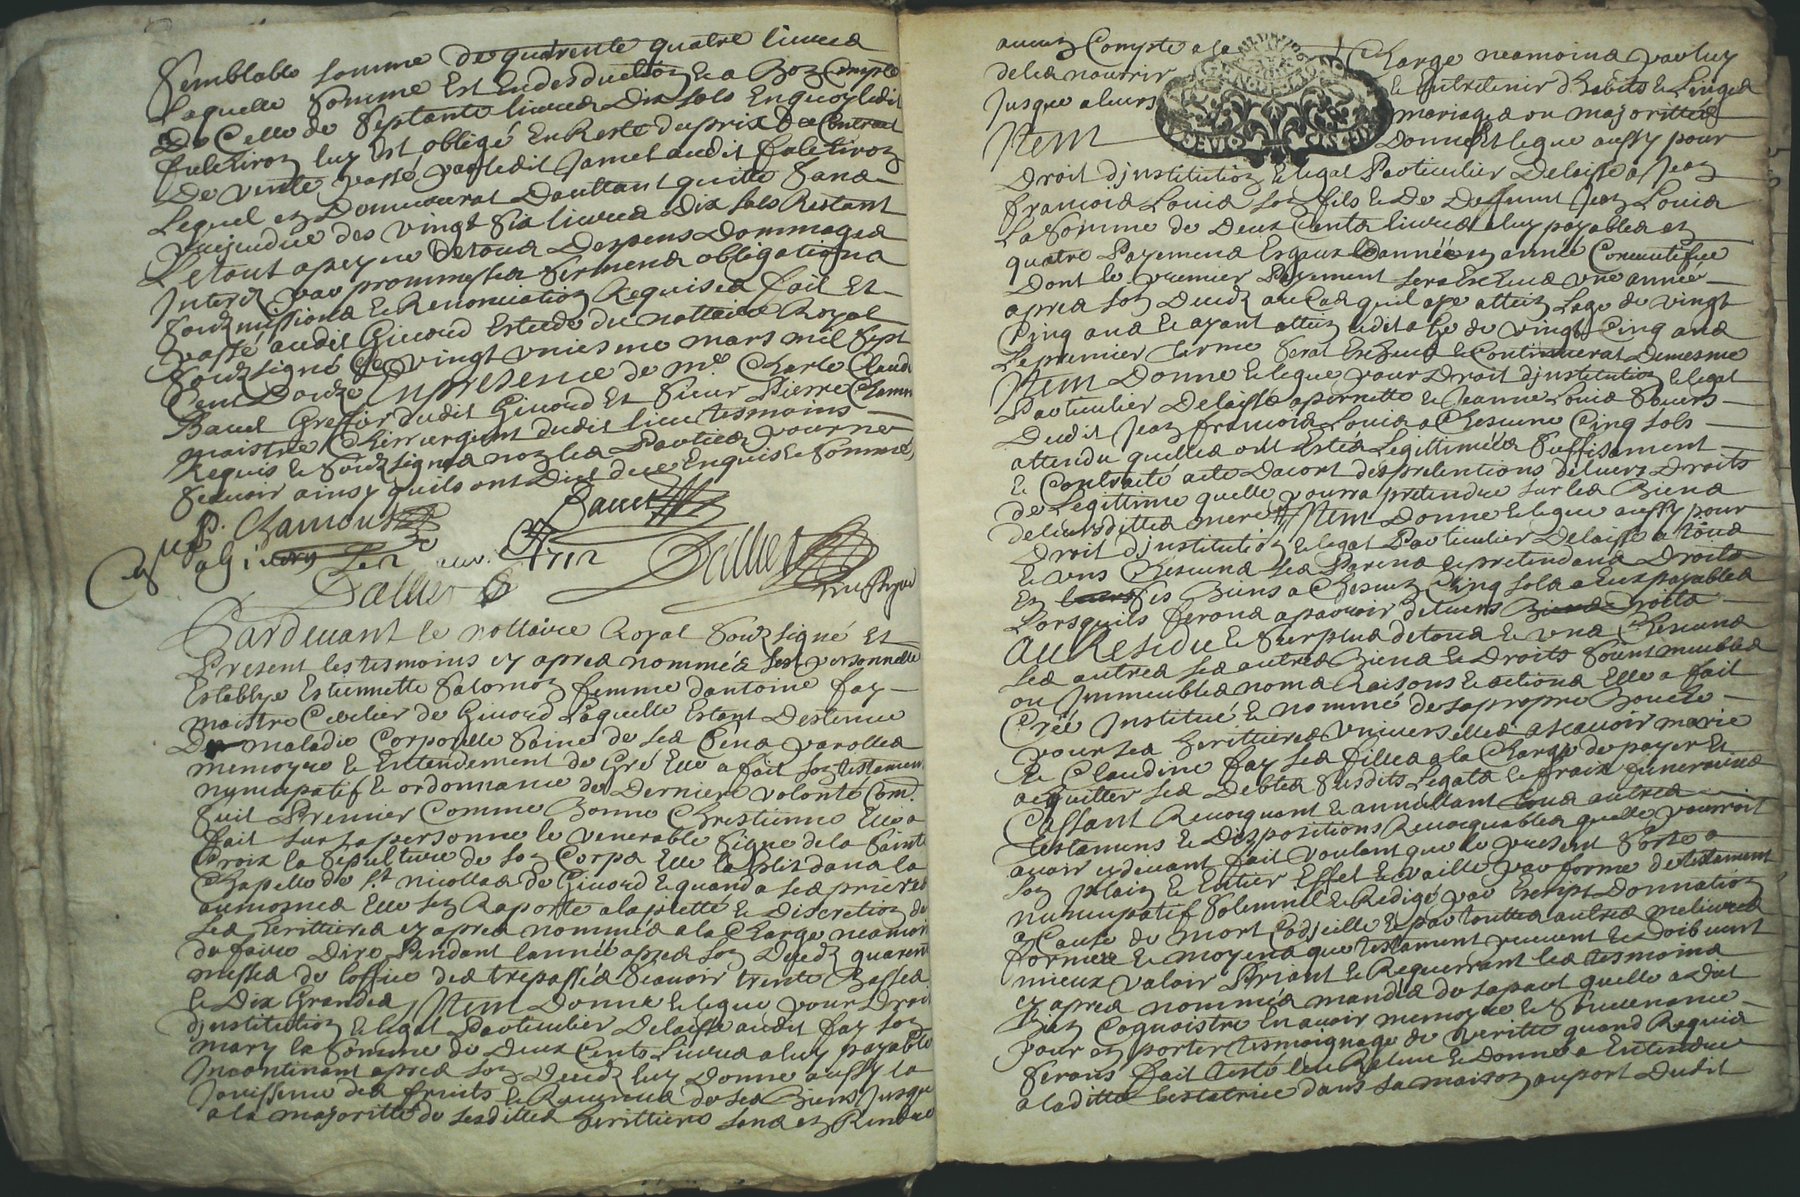 Semblable somme de quarente quatre livres
Laquelle somme est en desduction et a bon compte
De celle de septante livres dix sols en quoy ledit
luy est obligé en reste du prix de contract
De vente passé par ledit Jamet audit
Lequel en demeurat daultant quitte sans
prejudice des vingt six livres dix sols restant
Le tout a peyne de tous despens dommages
Interez par prommesses serments obligations
Soubzmissions et renonciations requises fait et
passé audit Givord estude du nottaire Royal
soubzsigné le vingt uniesme mars mil sept
cent douze En presence de me. Charle Claude
Bauet Greffier dudit Givord et sieur Pierre Chamou
maistre chirurgient dudit lieu tesmoins
Requis et soubzsignés non les parties pour ne
scavoir ainsy quils ont dict de ce enquis et sommé
P. Chamous Bauet
a Givors Le 2 avr. 1712
Dallier Dallier
Pardevant le nottaire Royal soubzsigné et
Present les tesmoins cy apres nommés sest personnelle
establye Estiennette Salomon femme dantoine fay
maistre de Givord Laquelle estant destenue
De maladie corporelle saine de ses sens parolles
memoyre et entendement de gré elle a fait son testament
nuncupatif et ordonnance de derniere volonté com.
suit Premier comme bonne chrestienne elle a
fait sur sa personne le venerable signe de la sainte
Croix la sepulture de son corps elle la eslit dans la
Chapelle de St nicollas de Givord et quand a ses prieres
aumosnes elle sen raporte a la piette et discretion de
ses herittieres cy apres nommes a la charge neamoins
de faire dire pendant lannée apres son decedz quarente
messes de loffice des trespassés scavoir trente basses
et dix grandes Item donne et legue pour droit
djnstitution et legat particulier delaisse audit fay son
mary la somme de deux cents livres a luy payable
Incontinant apres son decedz luy donne aussy la
Jouissance des fruits et revenus de ses biens jusque
a la majoritté de sesdittes herittiere sans en rendre
aucun compte a la charge neamoins par luy
de les nourrir et entretenir dhabits et linges
jusque a leurs mariages ou majorittés
Item Donne et legue aussy pour
droit djnstitution et legat particulier delaisse a Jean
francois Louis son fils et de deffunt Jean Louis
La somme de deux cents livres a luy payables en
quatre payemens esgaux dannée en année consecutifve
dont le premier payement sera escheus une année
apres son decedz au cas quil aye atteint lage de vingt
cinq ans et ayant atteint ledit aage de vingt cinq ans
le premier terme serat escheus et continuerat de mesme
Item donne et legue pour droit djnstitution et legat
particulier delaisse a pernette et Jeanne Louis soeurs
dudit Jean francois Louis a chescune cinq sols
attendu quelles ont estés legittimées suffisament
et contraité acte dacort des pretentions de leurs droits
de legittime quelle pourra pretendre sur les biens
de leursdittes mere Item donne et legue aussy pour
droit djnstitution et legat particulier delaisse a tous
et uns chescuns ses parens et pretendans droits
en ses biens a chescun cinq sols a eux payables
lorsquils serons apparoir de leurs droits
Au Residu et surplus de tous et uns chescuns
ses autres ses autres biens et droits soient meubles
ou jmmeubles noms raisons et actions elle a fait
creé institué et nommé de sa propre bouche
pour ses heritieres universelles a scavoir marie
et Claudine fay ses filles a la charge de payer et
acquitter ses debtes susdits legats et fraix funeraires
cassant revocquant et annullant tous autres
testamens et dispositions revocquables quelle pourroit
avoir cydevant fait voulant que le present sorte a
son plain et entier effet et vaille par forme de testament
nuncupatif solemnel et redigé par escript donnation
a cause de mort codjcille et par touttes autres meliures
formes et moyens que testament peuvent et doibvent
mieux valoir priant et requerrant les tesmoins
cy apres nommés mandés de sa part quelle a dit
bien cognoistre en avoir memoyre et souvenance
pour en porter tesmoignage de veritté quand requis
serons fait testé leu releu et donné a entendre
a laditte testatrice dans sa maison au port dudit